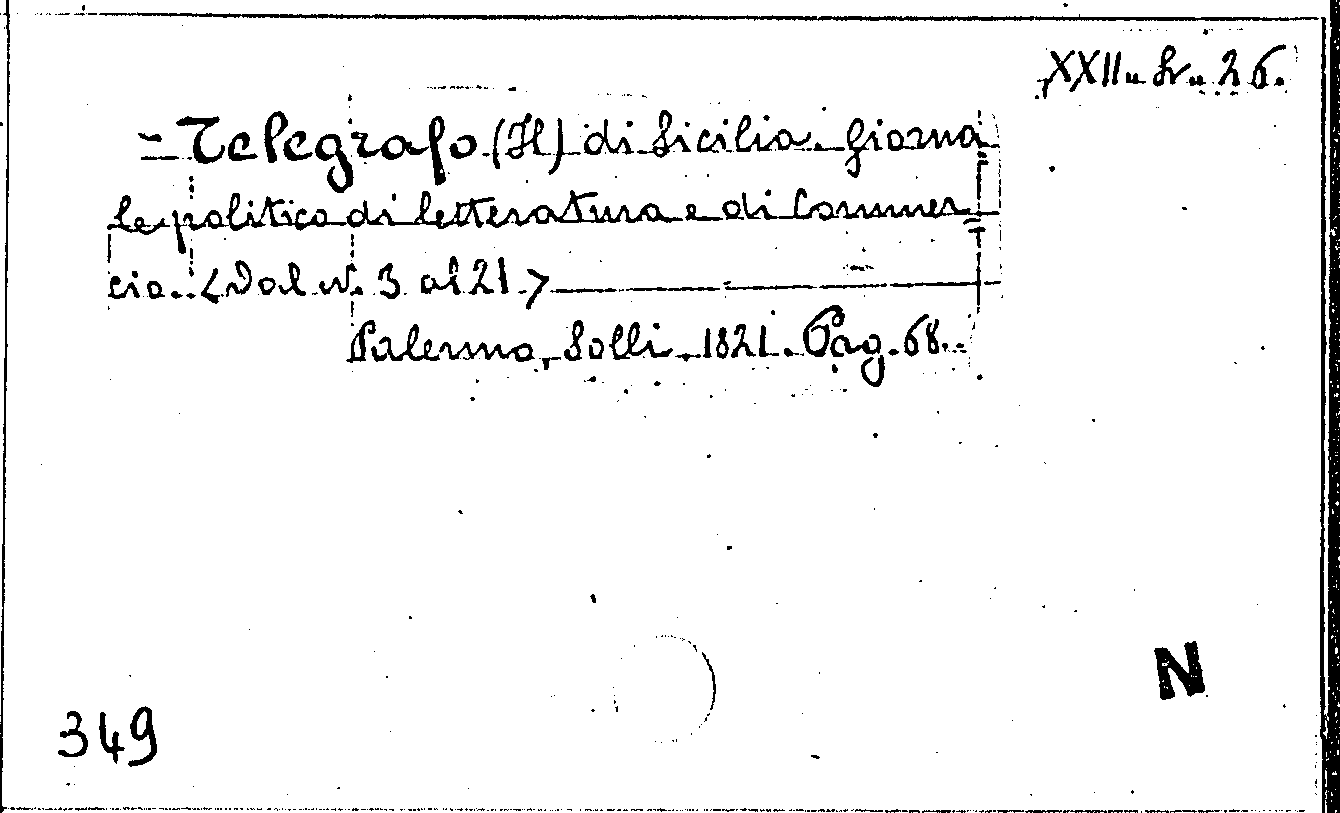 XXII. Sr. 26.
= Telegrafo (Il) di Sicilia. Giorna
le politico di letteratura e di Commer
cio. <Dal N. 3 al 21>
Palermo, Solli, 1821. Pag. 68.
N
349